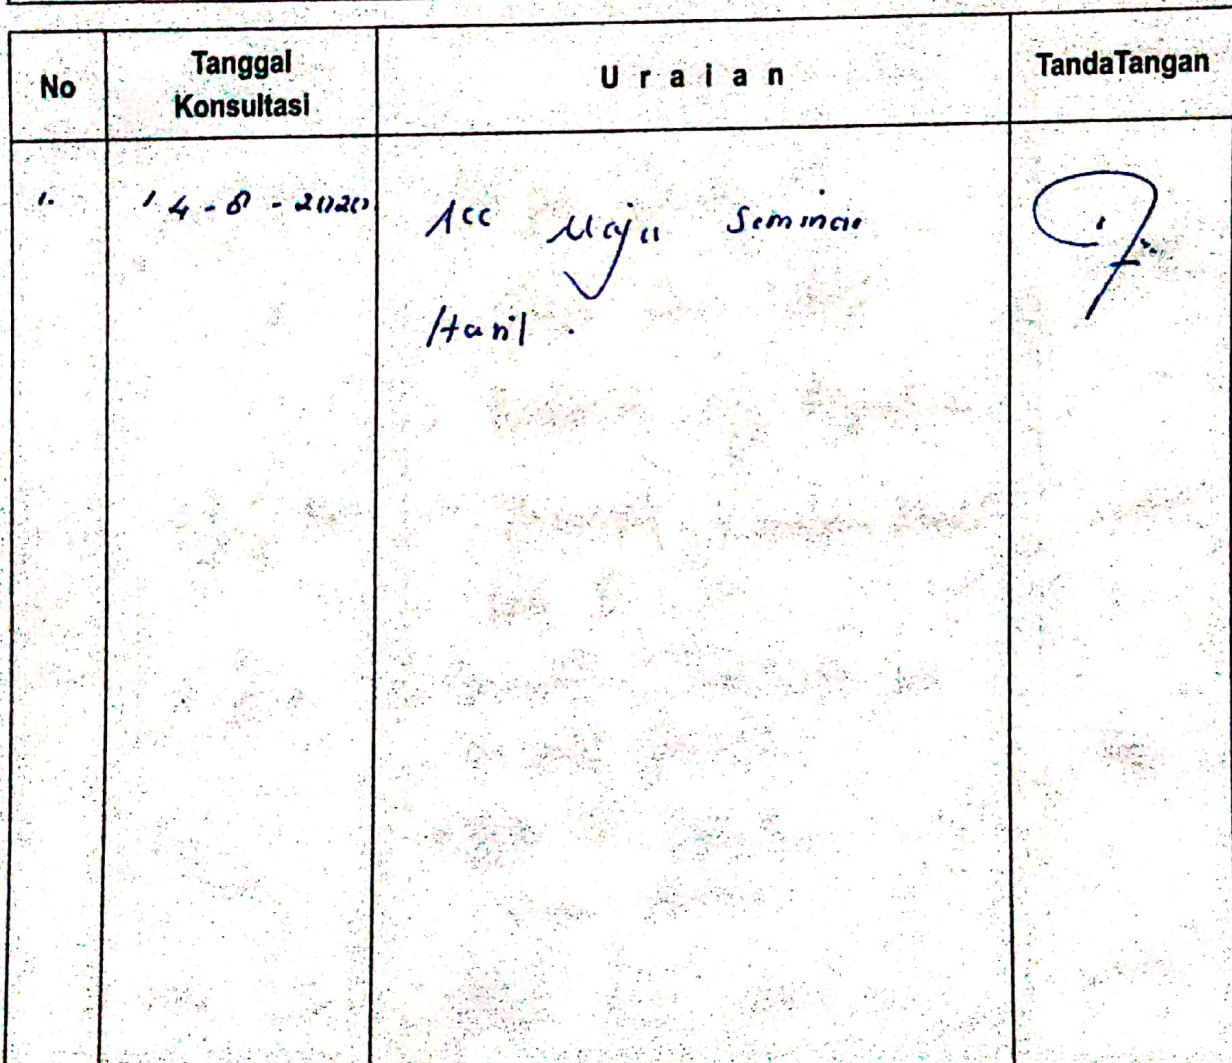 No
Tanggal
Konsultasi
Uraian
TandaTangan
1.
14-8-2020
Acc Maju Seminar
Hasil.